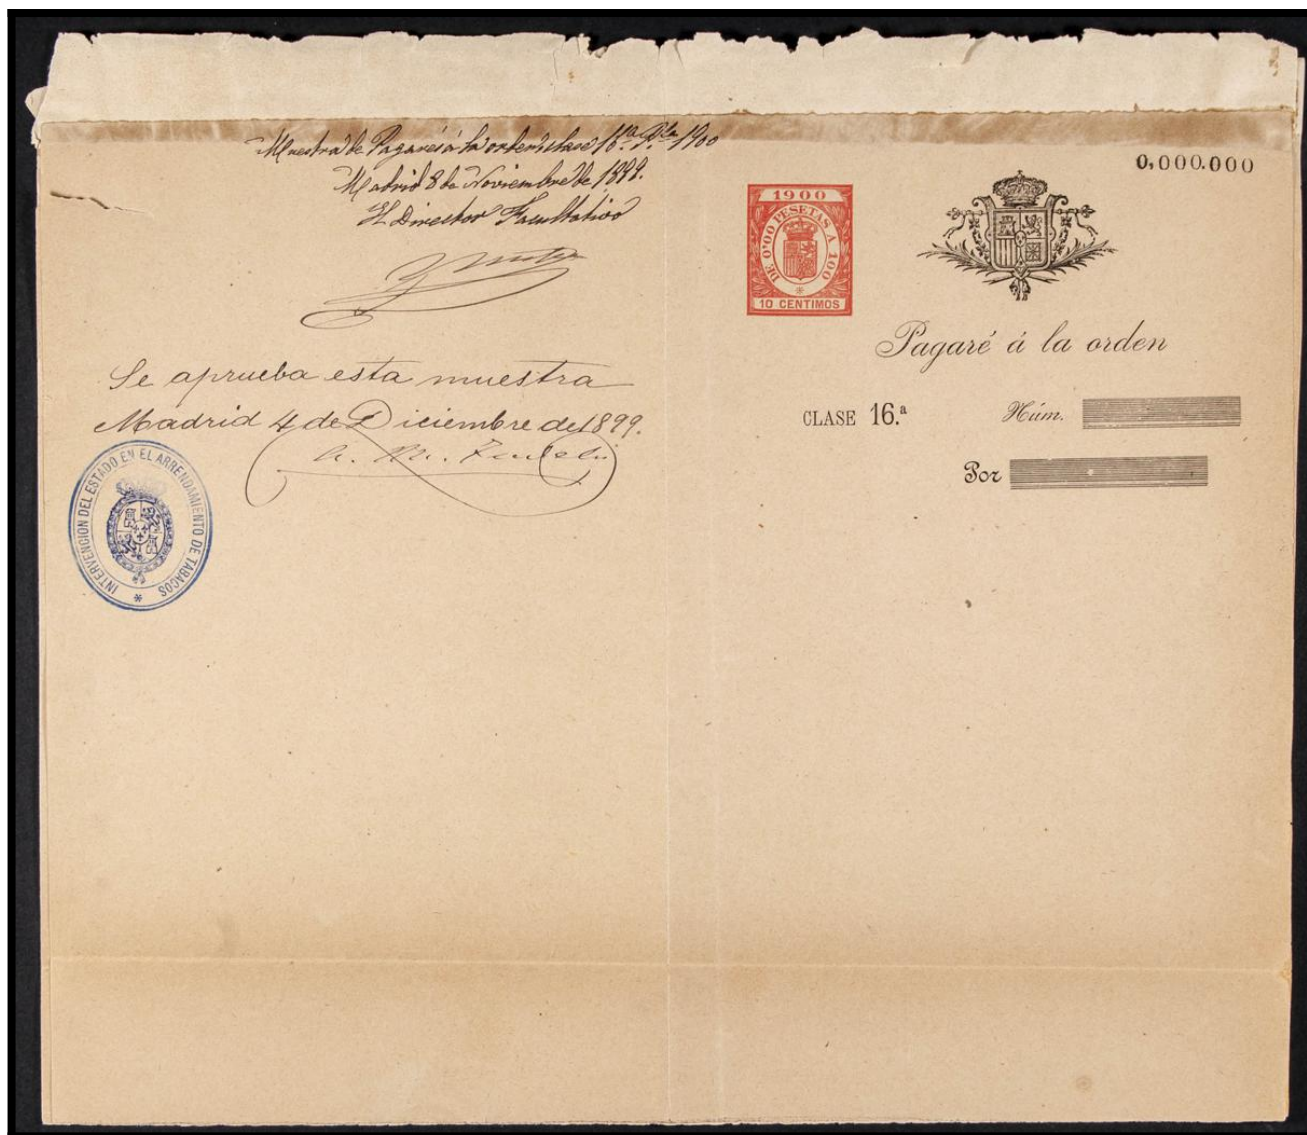 Muestra de Pagarés á la orden clase 16.ª 1900
Madrid 8 de Noviembre de 1899.
El Director Facultativo
Se aprueba esta muestra
Madrid 4 de Diciembre de 1899.
INTERVENCION DEL ESTADO EN EL ARRENDAMIENTO DE TABACOS
0,000.000
1900
DE 0'00 PESETAS A 100
10 CENTIMOS
Pagaré á la orden
CLASE 16.ª Núm.
Por